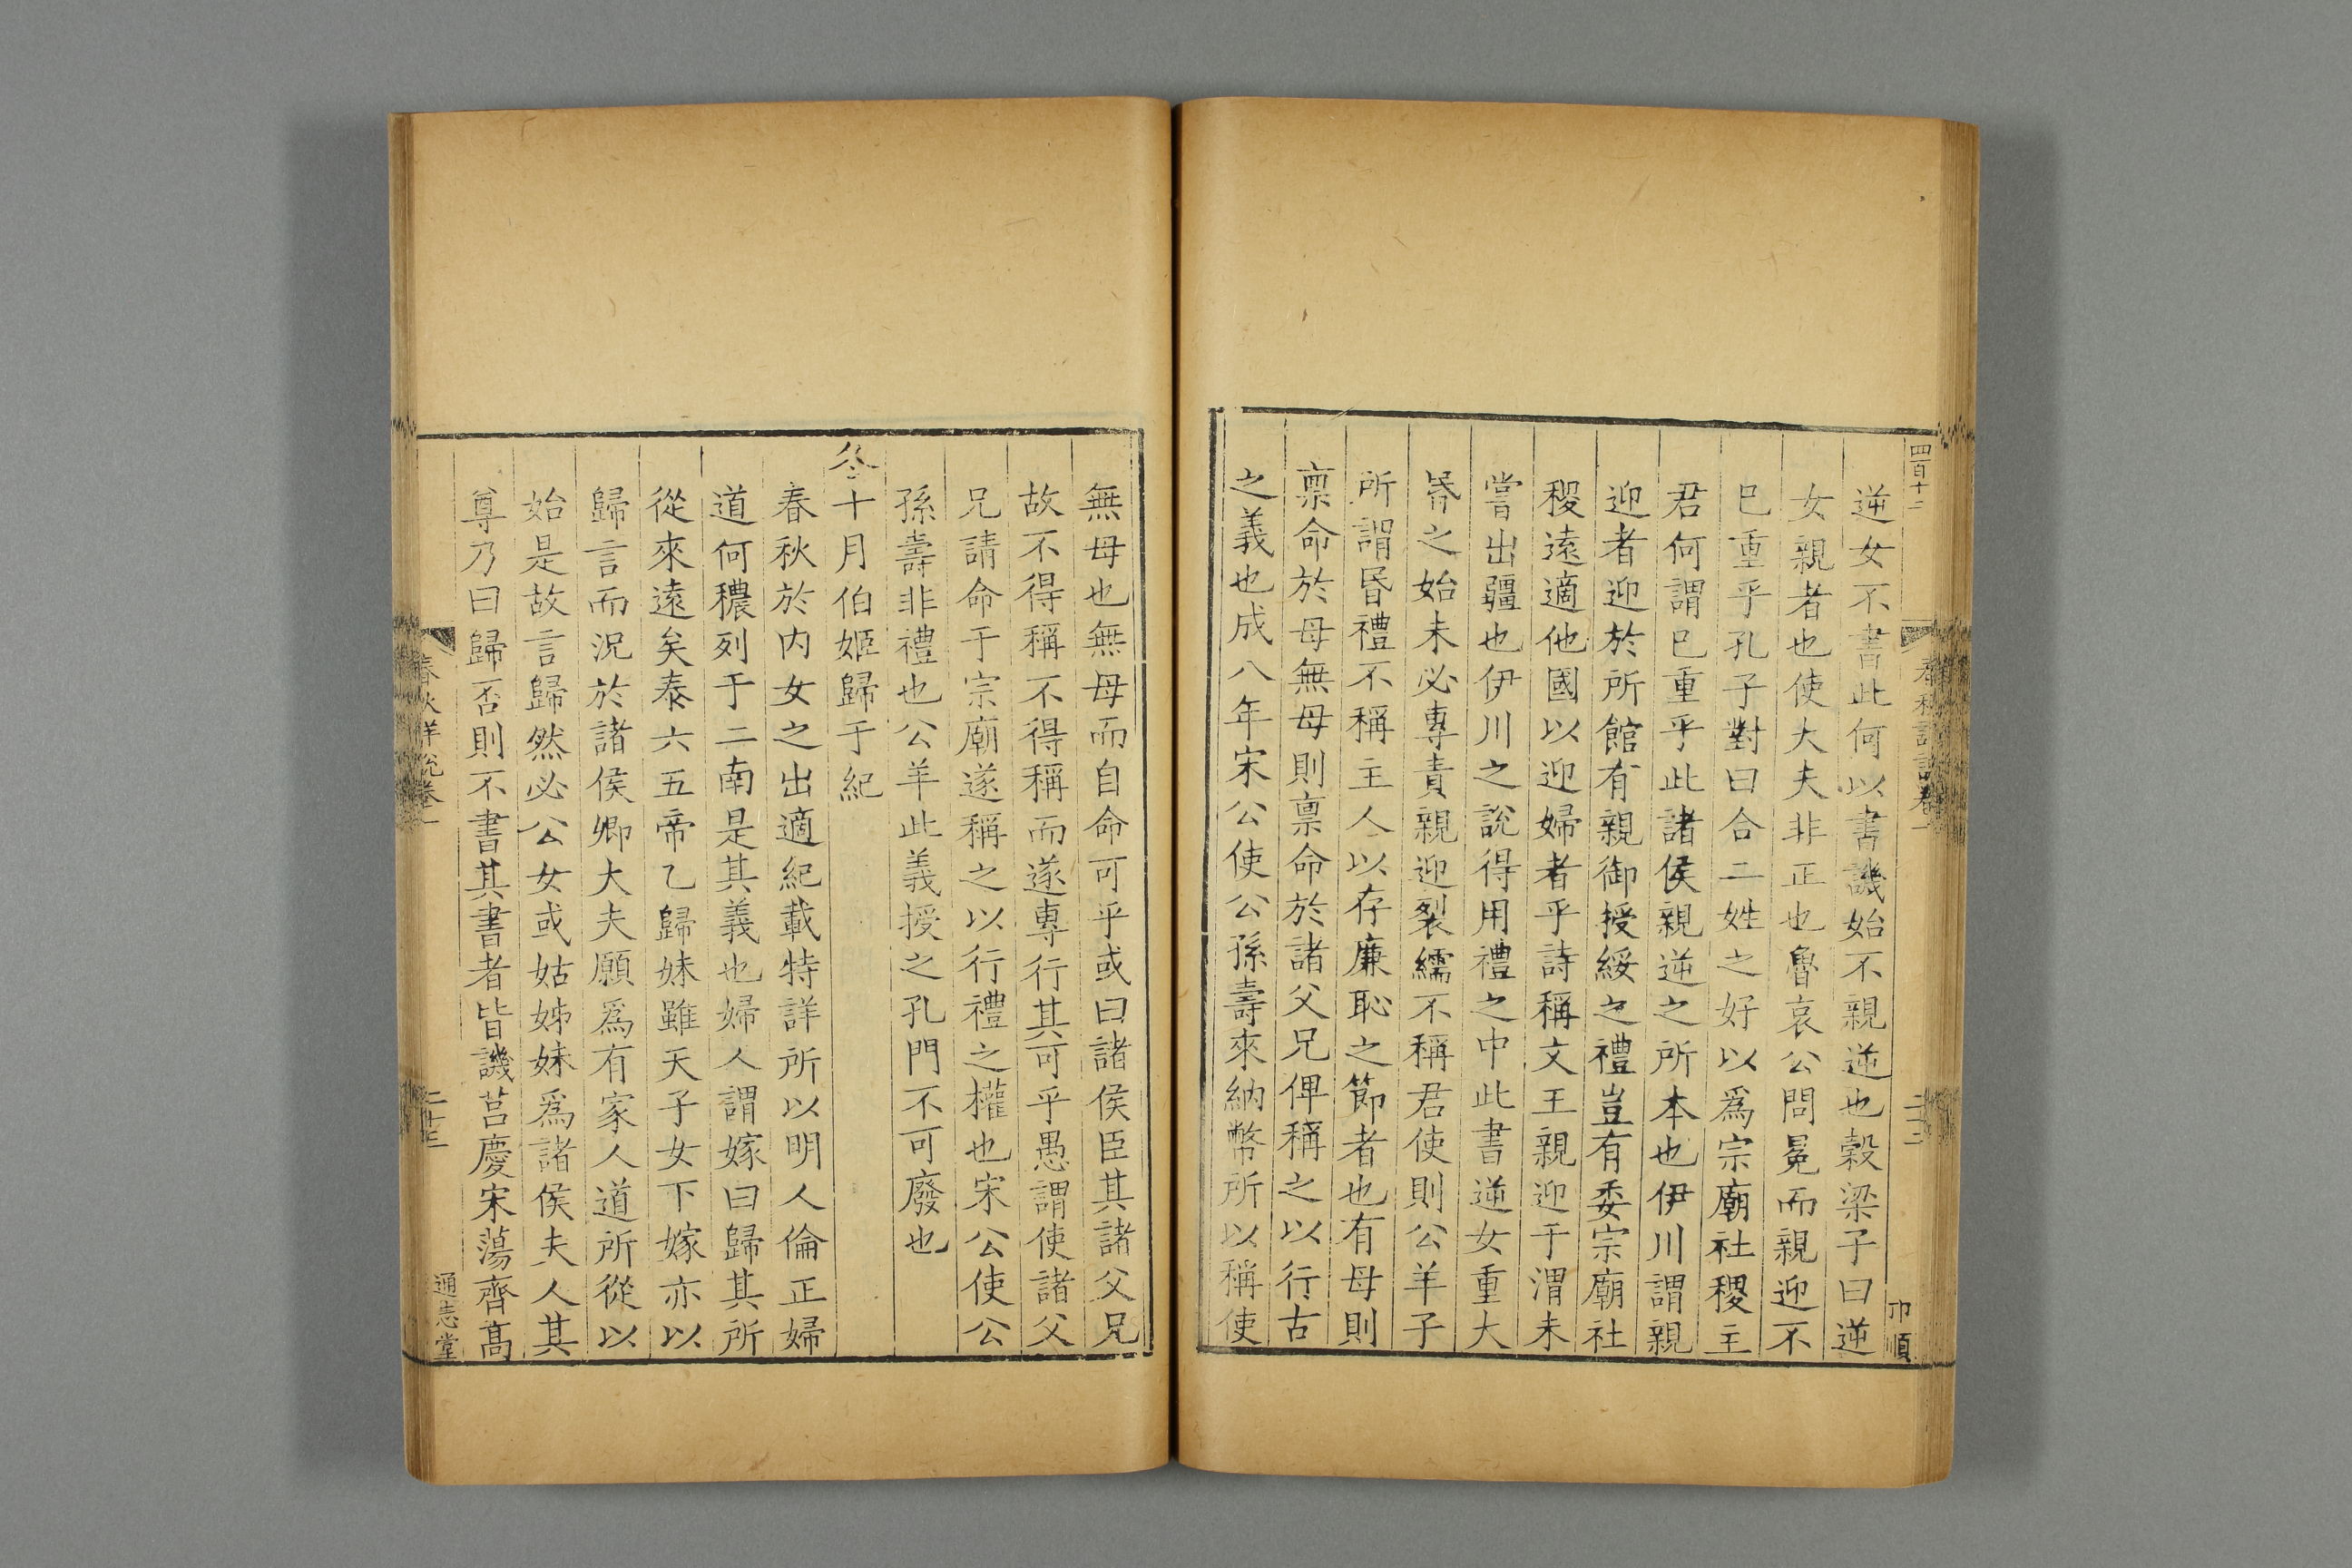 四百十二
逆女不書此何以書譏始不親逆也穀梁子曰逆
女親者也使大夫非正也魯哀公問冕而親迎不
巳重乎孔子對曰合二姓之好以爲宗廟社稷主
君何謂巳重乎此諸侯親逆之所本也伊川謂親
迎者迎於所館有親御授綏之禮豈有委宗廟社
稷遠適他國以迎婦者乎詩稱文王親迎于渭未
嘗出疆也伊川之說得用禮之中此書逆女重大
昬之始未必專責親迎裂繻不稱君使則公羊子
所謂昬禮不稱主人以存廉恥之節者也有母則
禀命於母無母則禀命於諸父兄俾稱之以行古
之義也成八年宋公使公孫壽來納幣所以稱使
無母也無母而自命可乎或曰諸侯臣其諸父兄
故不得稱不得稱而遂專行其可乎愚謂使諸父
兄請命于宗廟遂稱之以行禮之權也宋公使公
孫壽非禮也公羊此義授之孔門不可廢也
冬十月伯姬歸于紀
春秋於内女之出適紀載特詳所以明人倫正婦
道何穠列于二南是其義也婦人謂嫁曰歸其所
從來遠矣泰六五帝乙歸妹雖天子女下嫁亦以
歸言而況於諸侯卿大夫願爲有家人道所從以
始是故言歸然必公女或姑姊妹爲諸侯夫人其
尊乃曰歸否則不書其書者皆譏莒慶宋蕩齊髙
春秋詳說卷一
二十三
通志堂